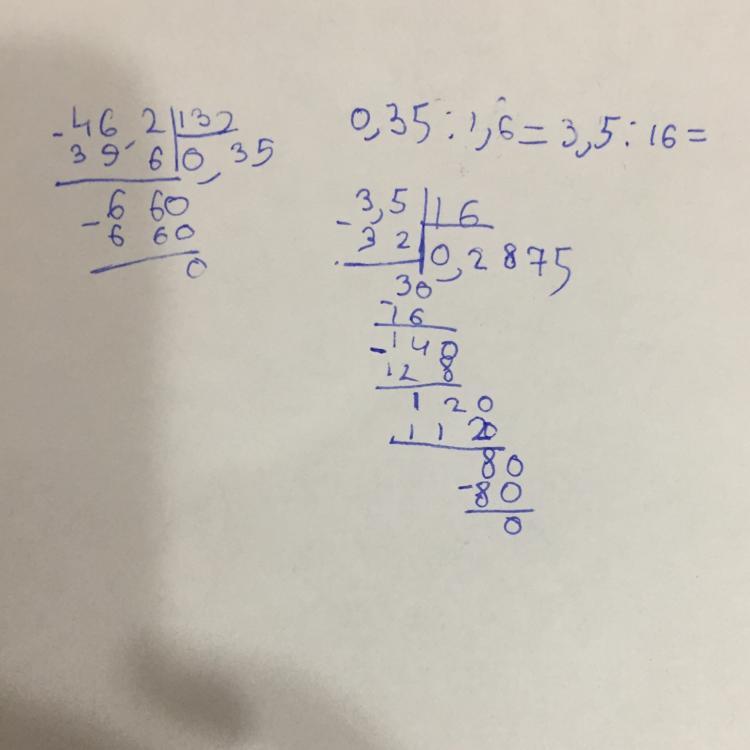 -46,2|132
39 6|0,35
-6 60
6 60
0
0,35:1,6=3,5:16=
-3,5|16
3 2|0,2875
30
-16
-140
128
120
112
80
-80
0